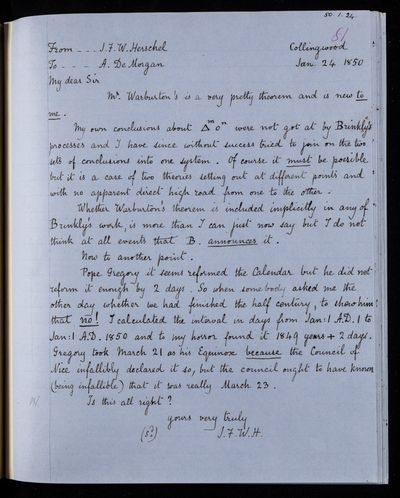 50.1.24
81
From - - - J.F.W. Herschel
Collingwood
To - - - - A. De Morgan
Jan. 24 1850
My dear Sir
Mr. Warburton's is a very pretty theorem and is new to
me.
My own conclusions about Δᵐ0ⁿ were not got at by Brinkly's
processes and I have since without success tried to join on the two
sets of conclusions into one system. Of course it must be possible
but it is a case of two theories setting out at different points and
with no apparent direct high road from one to the other.
Whether Warburton's theorem is included implicitly in any of
Brinkly's work, is more than I can just now say but I do not
think at all events that B. announces it.
Now to another point.
Pope Gregory it seems reformed the Calendar but he did not
reform it enough by 2 days. So when somebody asked me the
other day whether we had finished the half century, to shew him
that no! I calculated the interval in days from Jan: 1 A.D. 1 to
Jan: 1 A.D. 1850 and to my horror found it 1849 years + 2 days.
Gregory took March 21 as his Equinox because the Council of
Nice infallibly declared it so, but the council ought to have known
(being infallible) that it was really March 23.
Is this all right?
yours very truly
J.F.W.H.